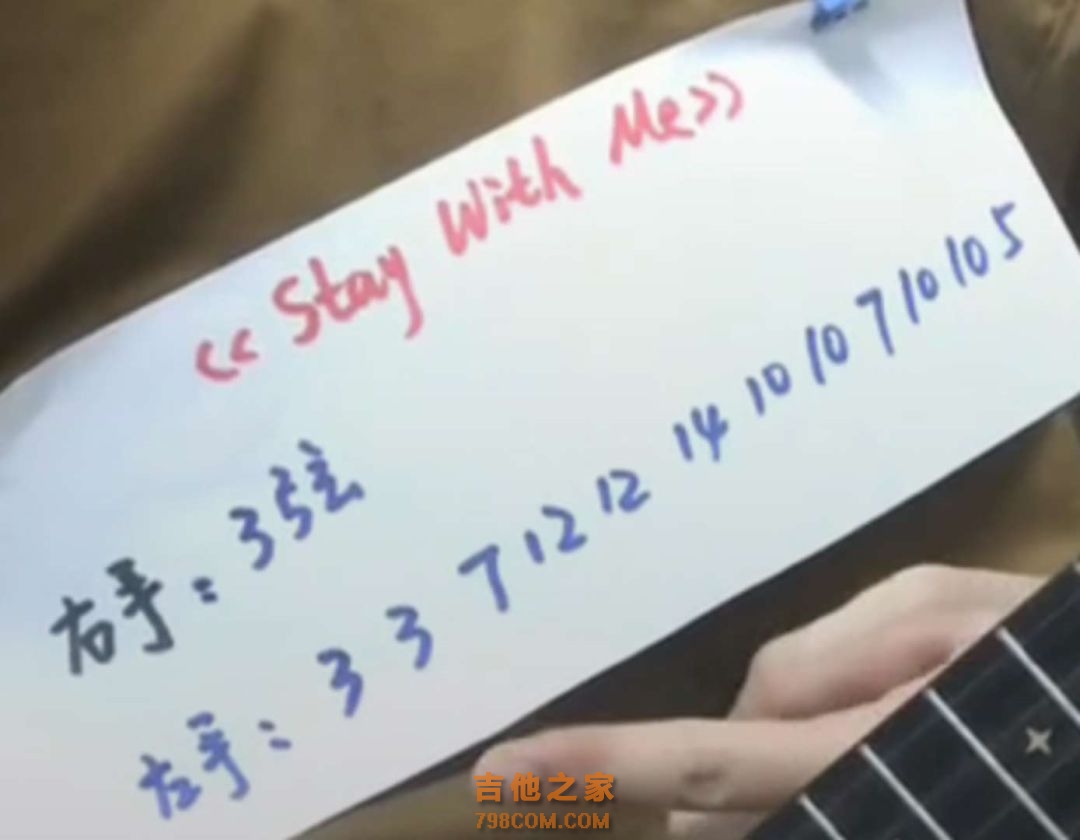 <<Stay With Me>>
右手：3弦
左手：3 3 7 12 12 14 10 10 7 10 10 5
吉他之家
798COM.COM